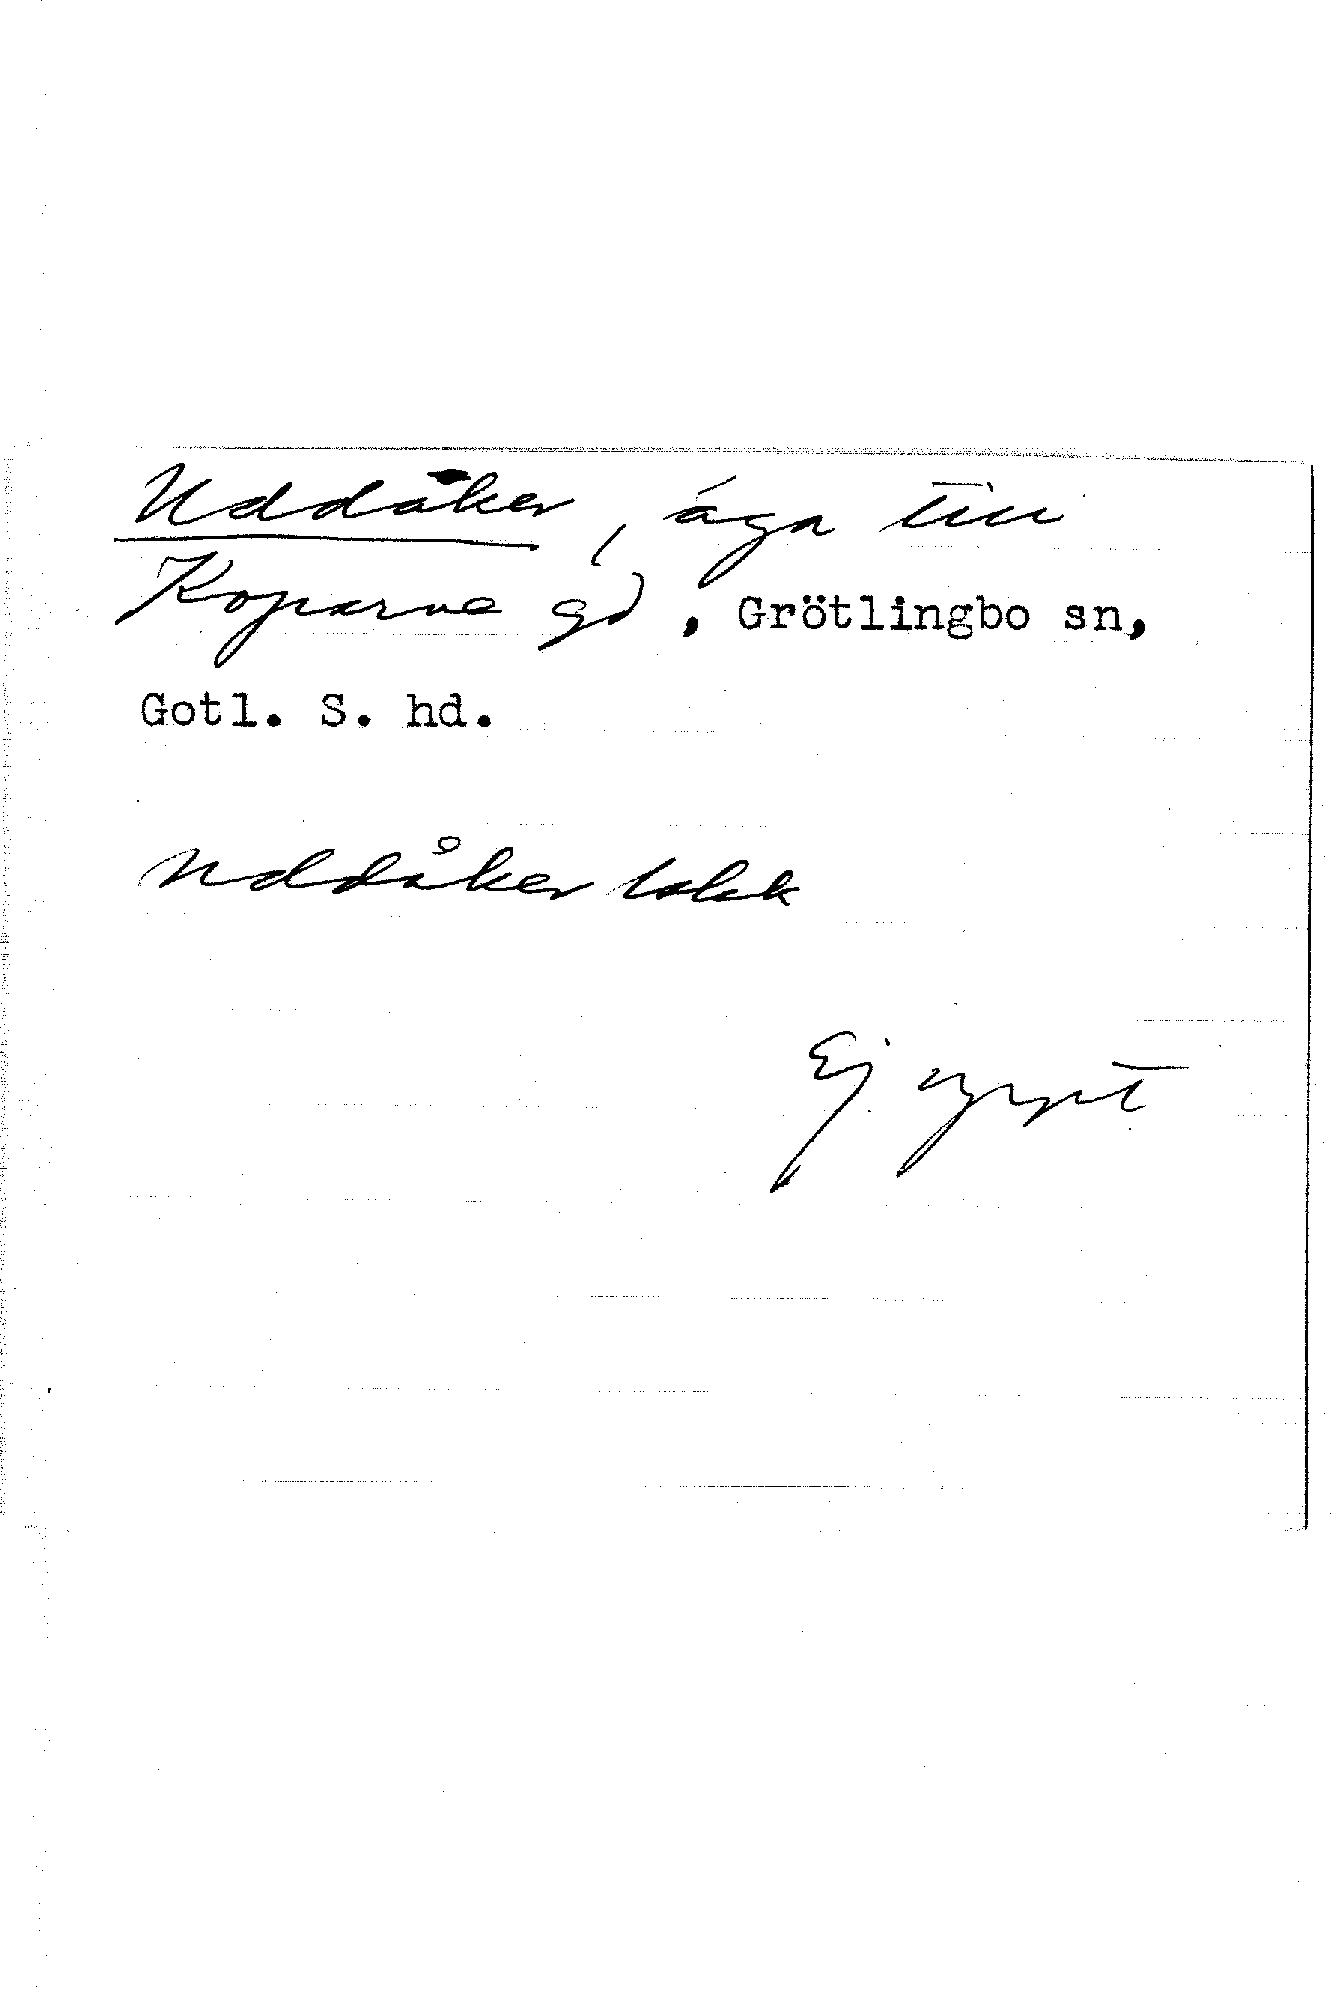 Uddåker, äga till
Koparve gd, Grötlingbo sn,
Gotl. S. hd.
Uddåker
Ej uppt